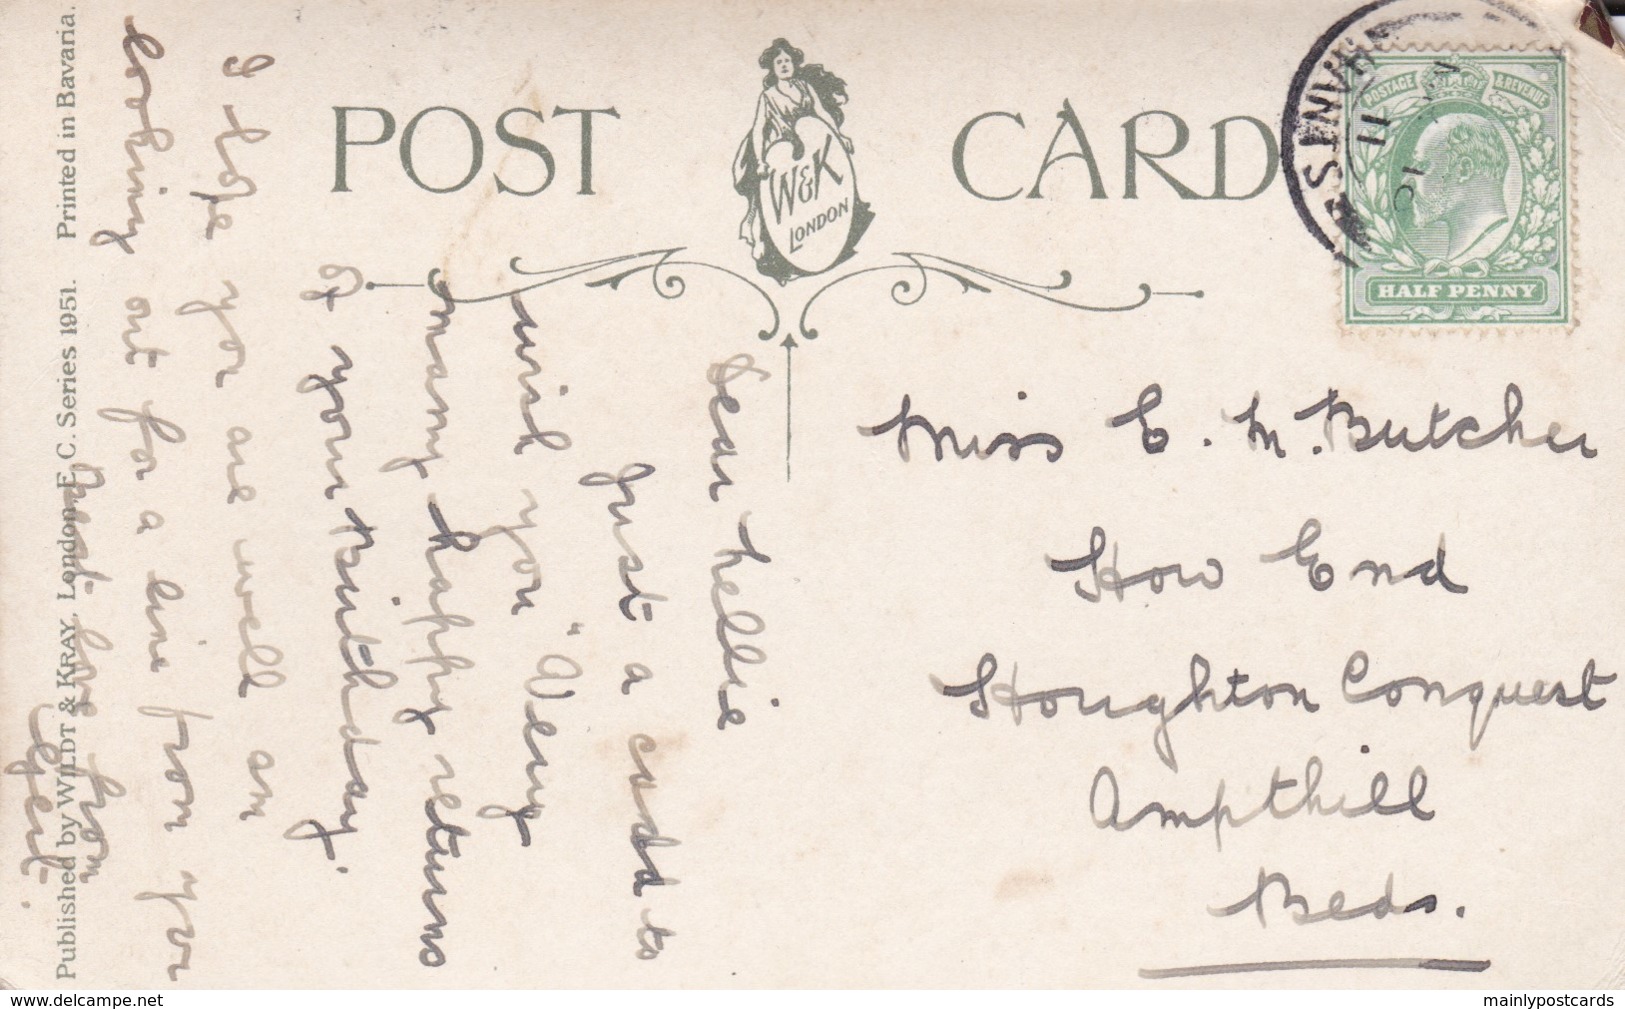 POST CARD
W&K
LONDON
HANTS
11
POSTAGE & REVENUE
HALF PENNY
Miss E. M. Butcher
How End
Houghton Conquest
Ampthill
Beds.
Dear Nellie
Just a card to
wish you "Very
many happy returns
of your Birthday.
I hope you are well am
looking out for a line from you
Best love from
Gert.
Published by WILDT & KRAY, London, E. C. Series 1951. Printed in Bavaria.
www.delcampe.net
mainlypostcards